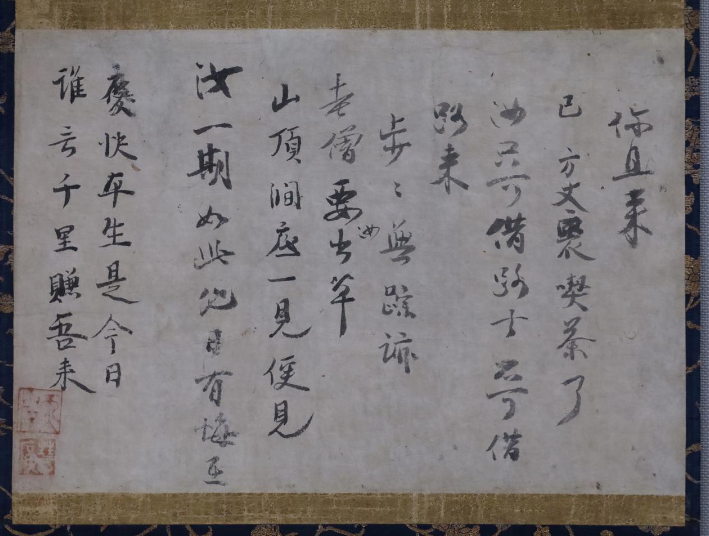 你且来
已方丈裏喫茶了
汝只可借路古不可借
路来
歩〻無蹤跡
老僧要汝出草
山頂澗底一見便見
汝一期如此他日有悔在
慶快平生是今日
誰言千里賺吾来